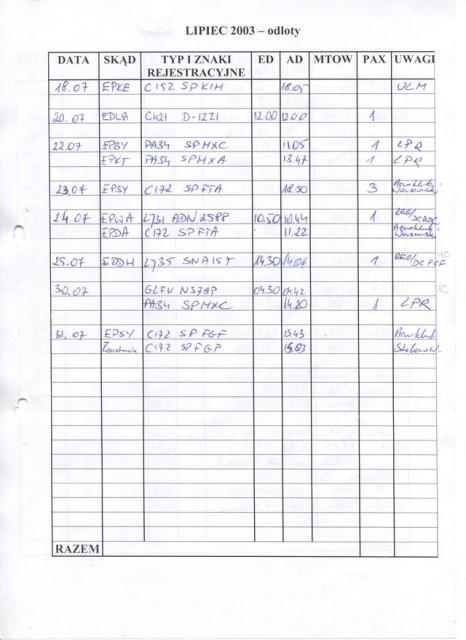 LIPIEC 2003 – odloty
DATA SKĄD TYP I ZNAKI REJESTRACYJNE ED AD MTOW PAX UWAGI
18.07 EPKE C152 SPKIM 18.05 ULM
20.07 EDLA C421 D-IZZI 12.00 12.00 1
22.07 EPBY PA34 SPMXC 11.05 1 LPR
EPKT PA34 SPMXA 13.47 1 LPR
23.07 EPSY C172 SPFTA 18.30 3
24.07 EPWA L731 10.50 10.44 1
EPDA C172 SPFTA 11.22
25.07 EDDH 14.30 14.06 1
30.07 04.30 04.42
PA34 SPMXC 14.20 1 LPR
31.07 EPSY C172 SPFGF 13.43
C172 SPFGF
RAZEM